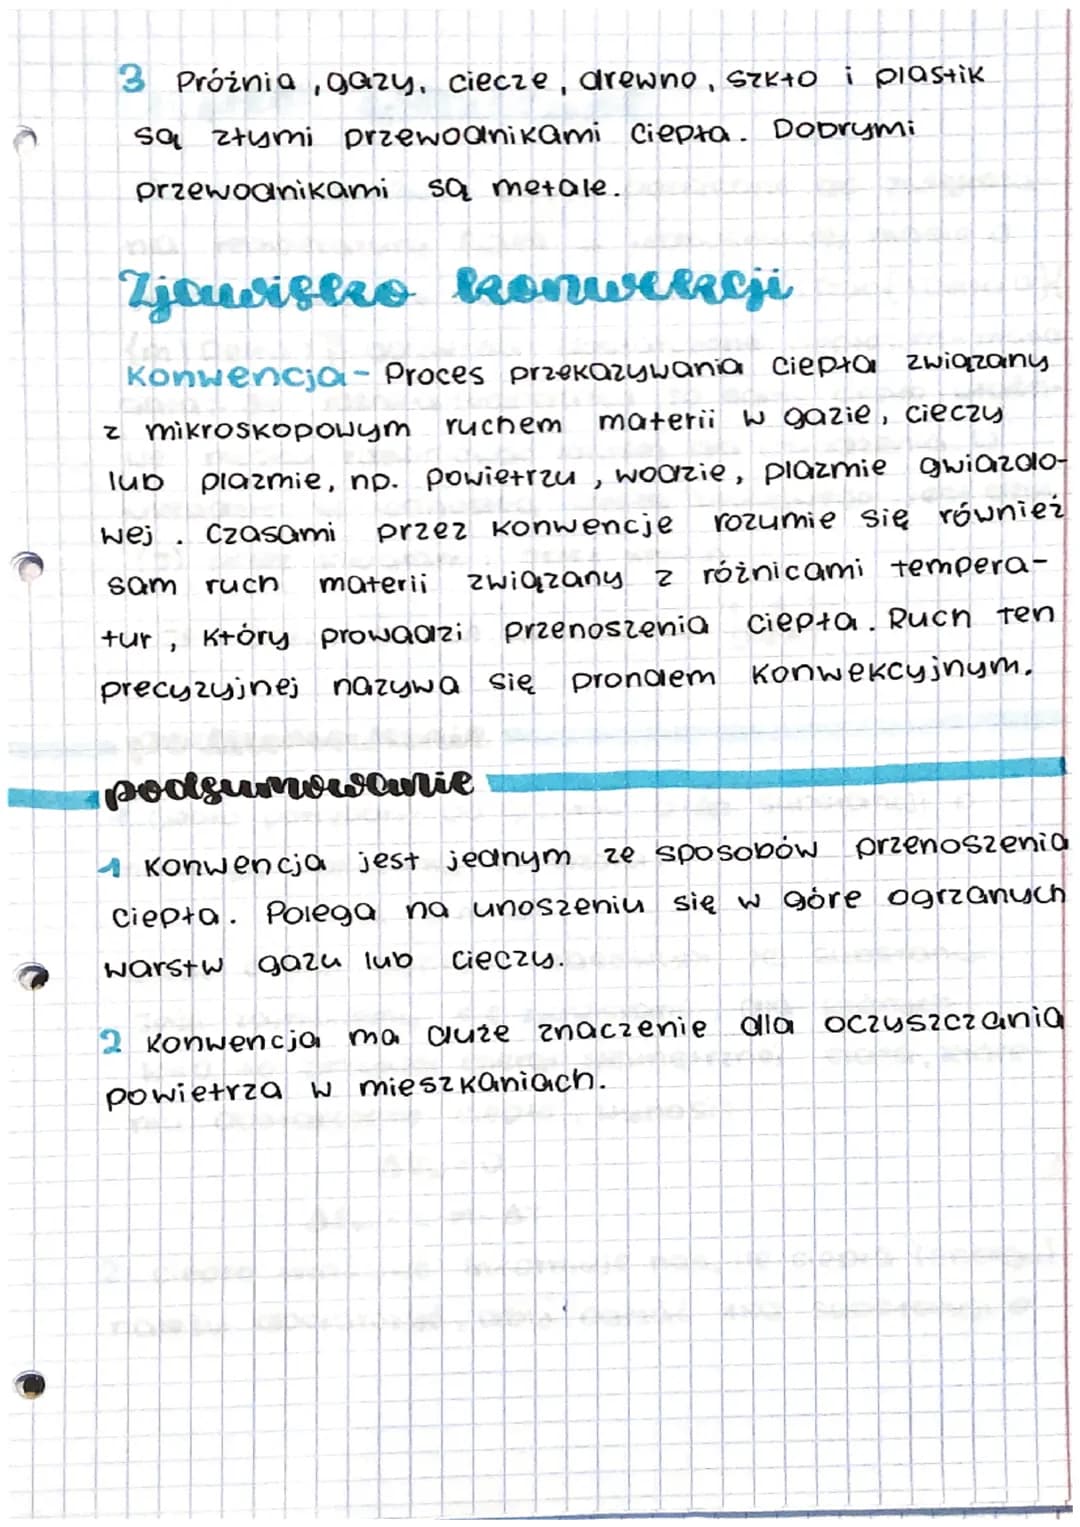 3 Próżnia, gazy, ciecze, drewno, szkło i plastik
są złymi przewodnikami ciepła. Dobrymi
przewodnikami są metale.
Zjawisko konwekcji
Konwencja - Proces przekazywania ciepła związany
z mikroskopowym ruchem materii w gazie, cieczy
lub plazmie, np. powietrzu, wodzie, plazmie gwiazdo-
wej. Czasami przez konwencje rozumie się również
sam ruch materii związany z różnicami tempera-
tur, który prowadzi przenoszenia ciepła. Ruch ten
precyzyjnej nazywa się prondem konwekcyjnym.
podsumowanie
1 Konwencja jest jednym ze sposobów przenoszenia
ciepła. Polega na unoszeniu się w góre ogrzanych
warstw gazu lub cieczy.
2 Konwencja ma duże znaczenie dla oczyszczania
powietrza w mieszkaniach.